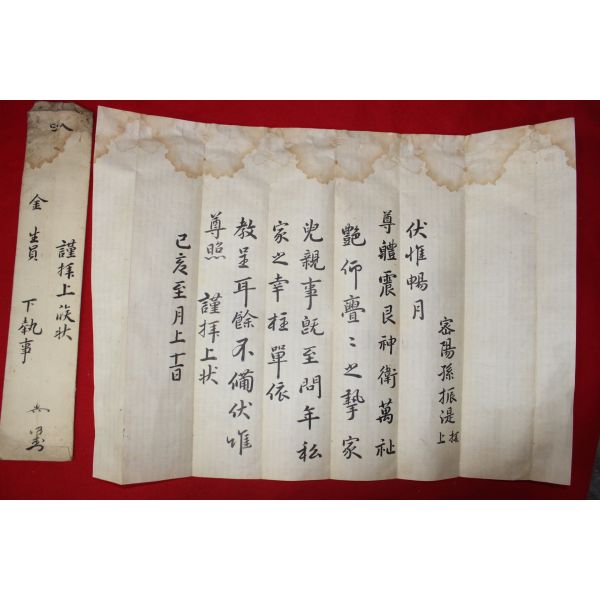 密陽孫振湜
上
伏惟暢月
尊體震艮神衛萬祉
艷仰亹〻之摯家
兒親事旣至問年私
家之幸柱單依
教呈耳餘不備伏惟
尊照 謹拜上狀
己亥至月上十日
謹拜上候狀
金生員 下執事